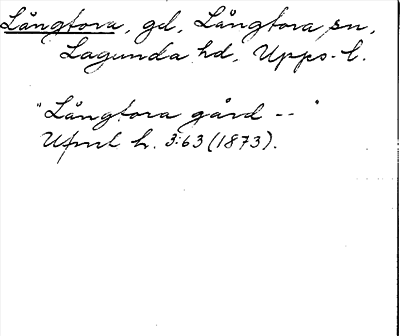 Långtora, gd, Långtora sn,
Lagunda hd, Upps. l.
"Långtora gård -- "
Upml h. 3:63 (1873).